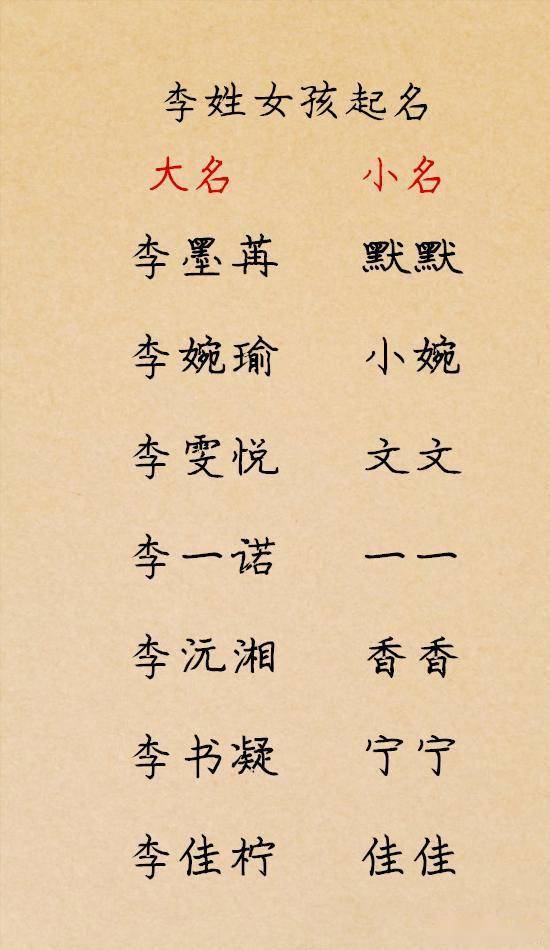 李姓女孩起名
大名 小名
李墨苒 默默
李婉瑜 小婉
李雯悦 文文
李一诺 一一
李沅湘 香香
李书凝 宁宁
李佳柠 佳佳